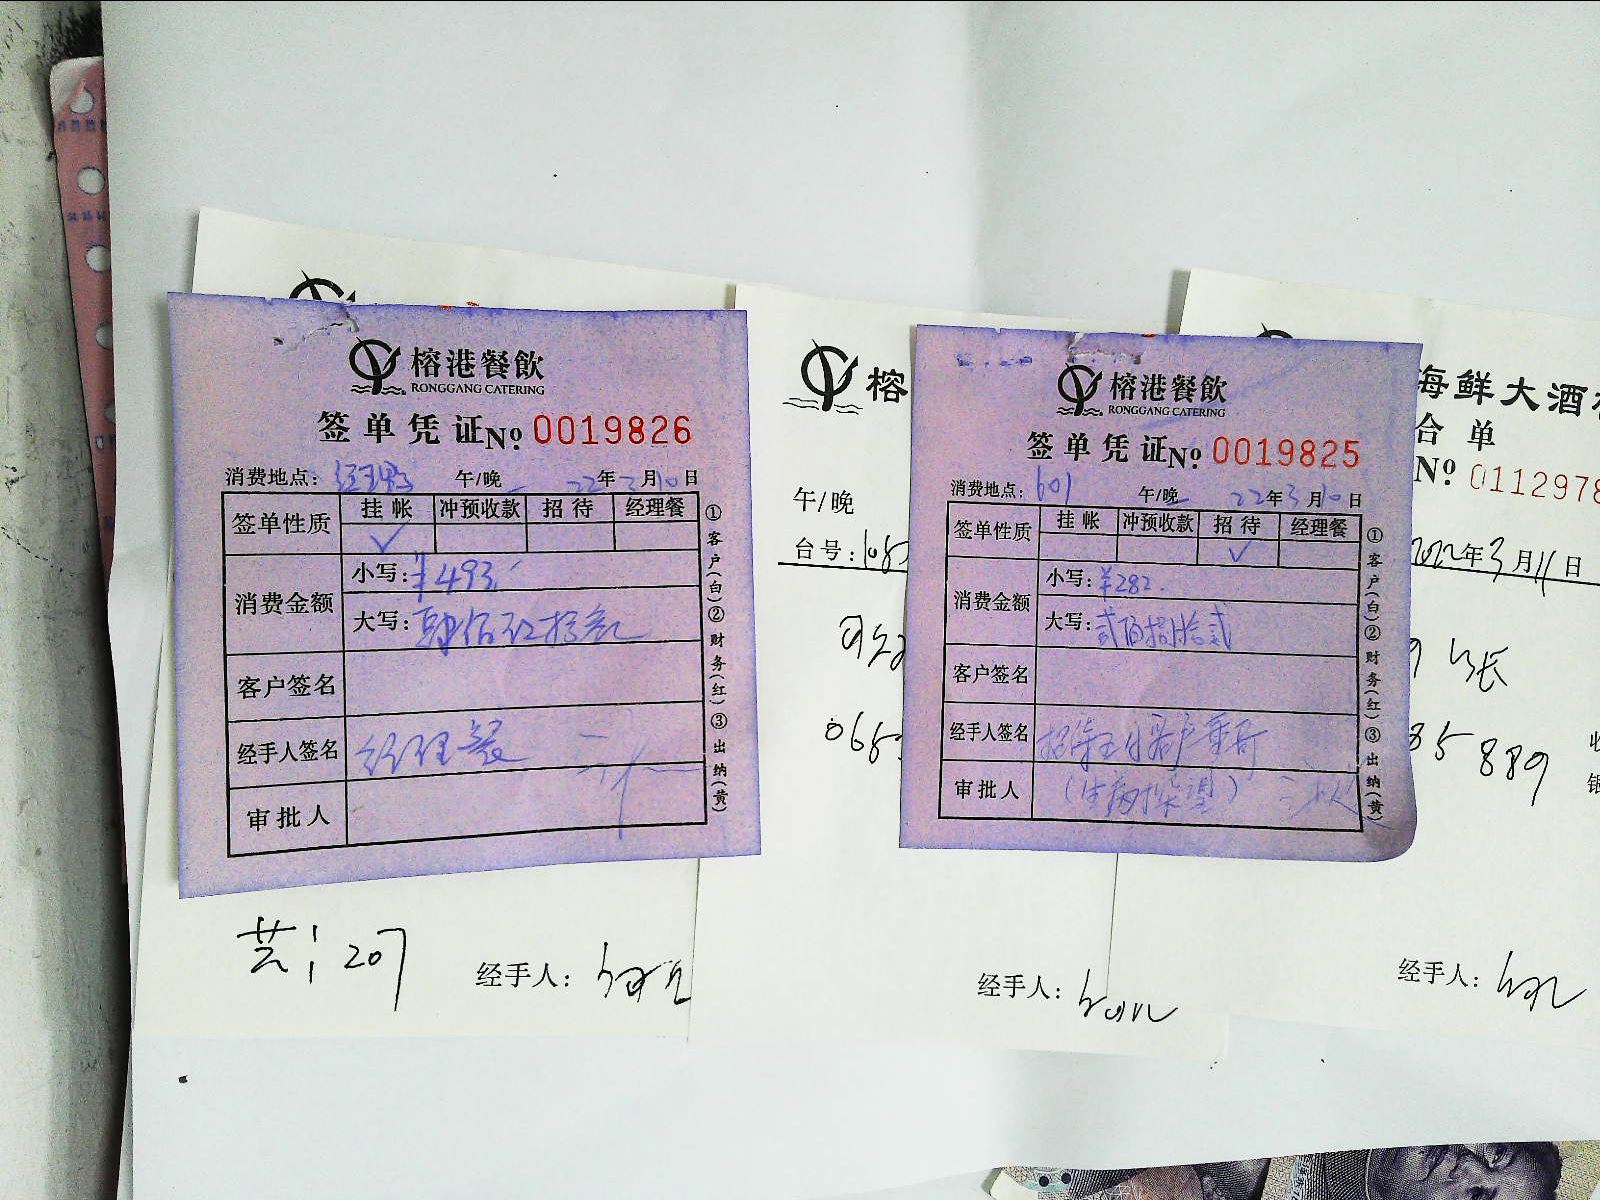 榕港餐飲
RONGGANG CATERING
签单凭证 No. 0019826
消费地点: 经理餐 午/晚 22年3月10日
签单性质 挂帐 冲预收款 招待 经理餐
✓
消费金额 小写: ¥493.
大写: 肆佰玖拾叁元
客户签名
经手人签名 经理餐
审批人
①客户(白)②财务(红)③出纳(黄)
207
经手人:
榕
午/晚
台号:
经手人:
榕港餐飲
RONGGANG CATERING
签单凭证 No. 0019825
消费地点: 601 午/晚 22年3月10日
签单性质 挂帐 冲预收款 招待 经理餐
✓
消费金额 小写: ¥282.
大写: 贰佰捌拾贰
客户签名
经手人签名
审批人
①客户(白)②财务(红)③出纳(黄)
海鲜大酒
合单
No. 0112978
2022年3月11日
35889
经手人: